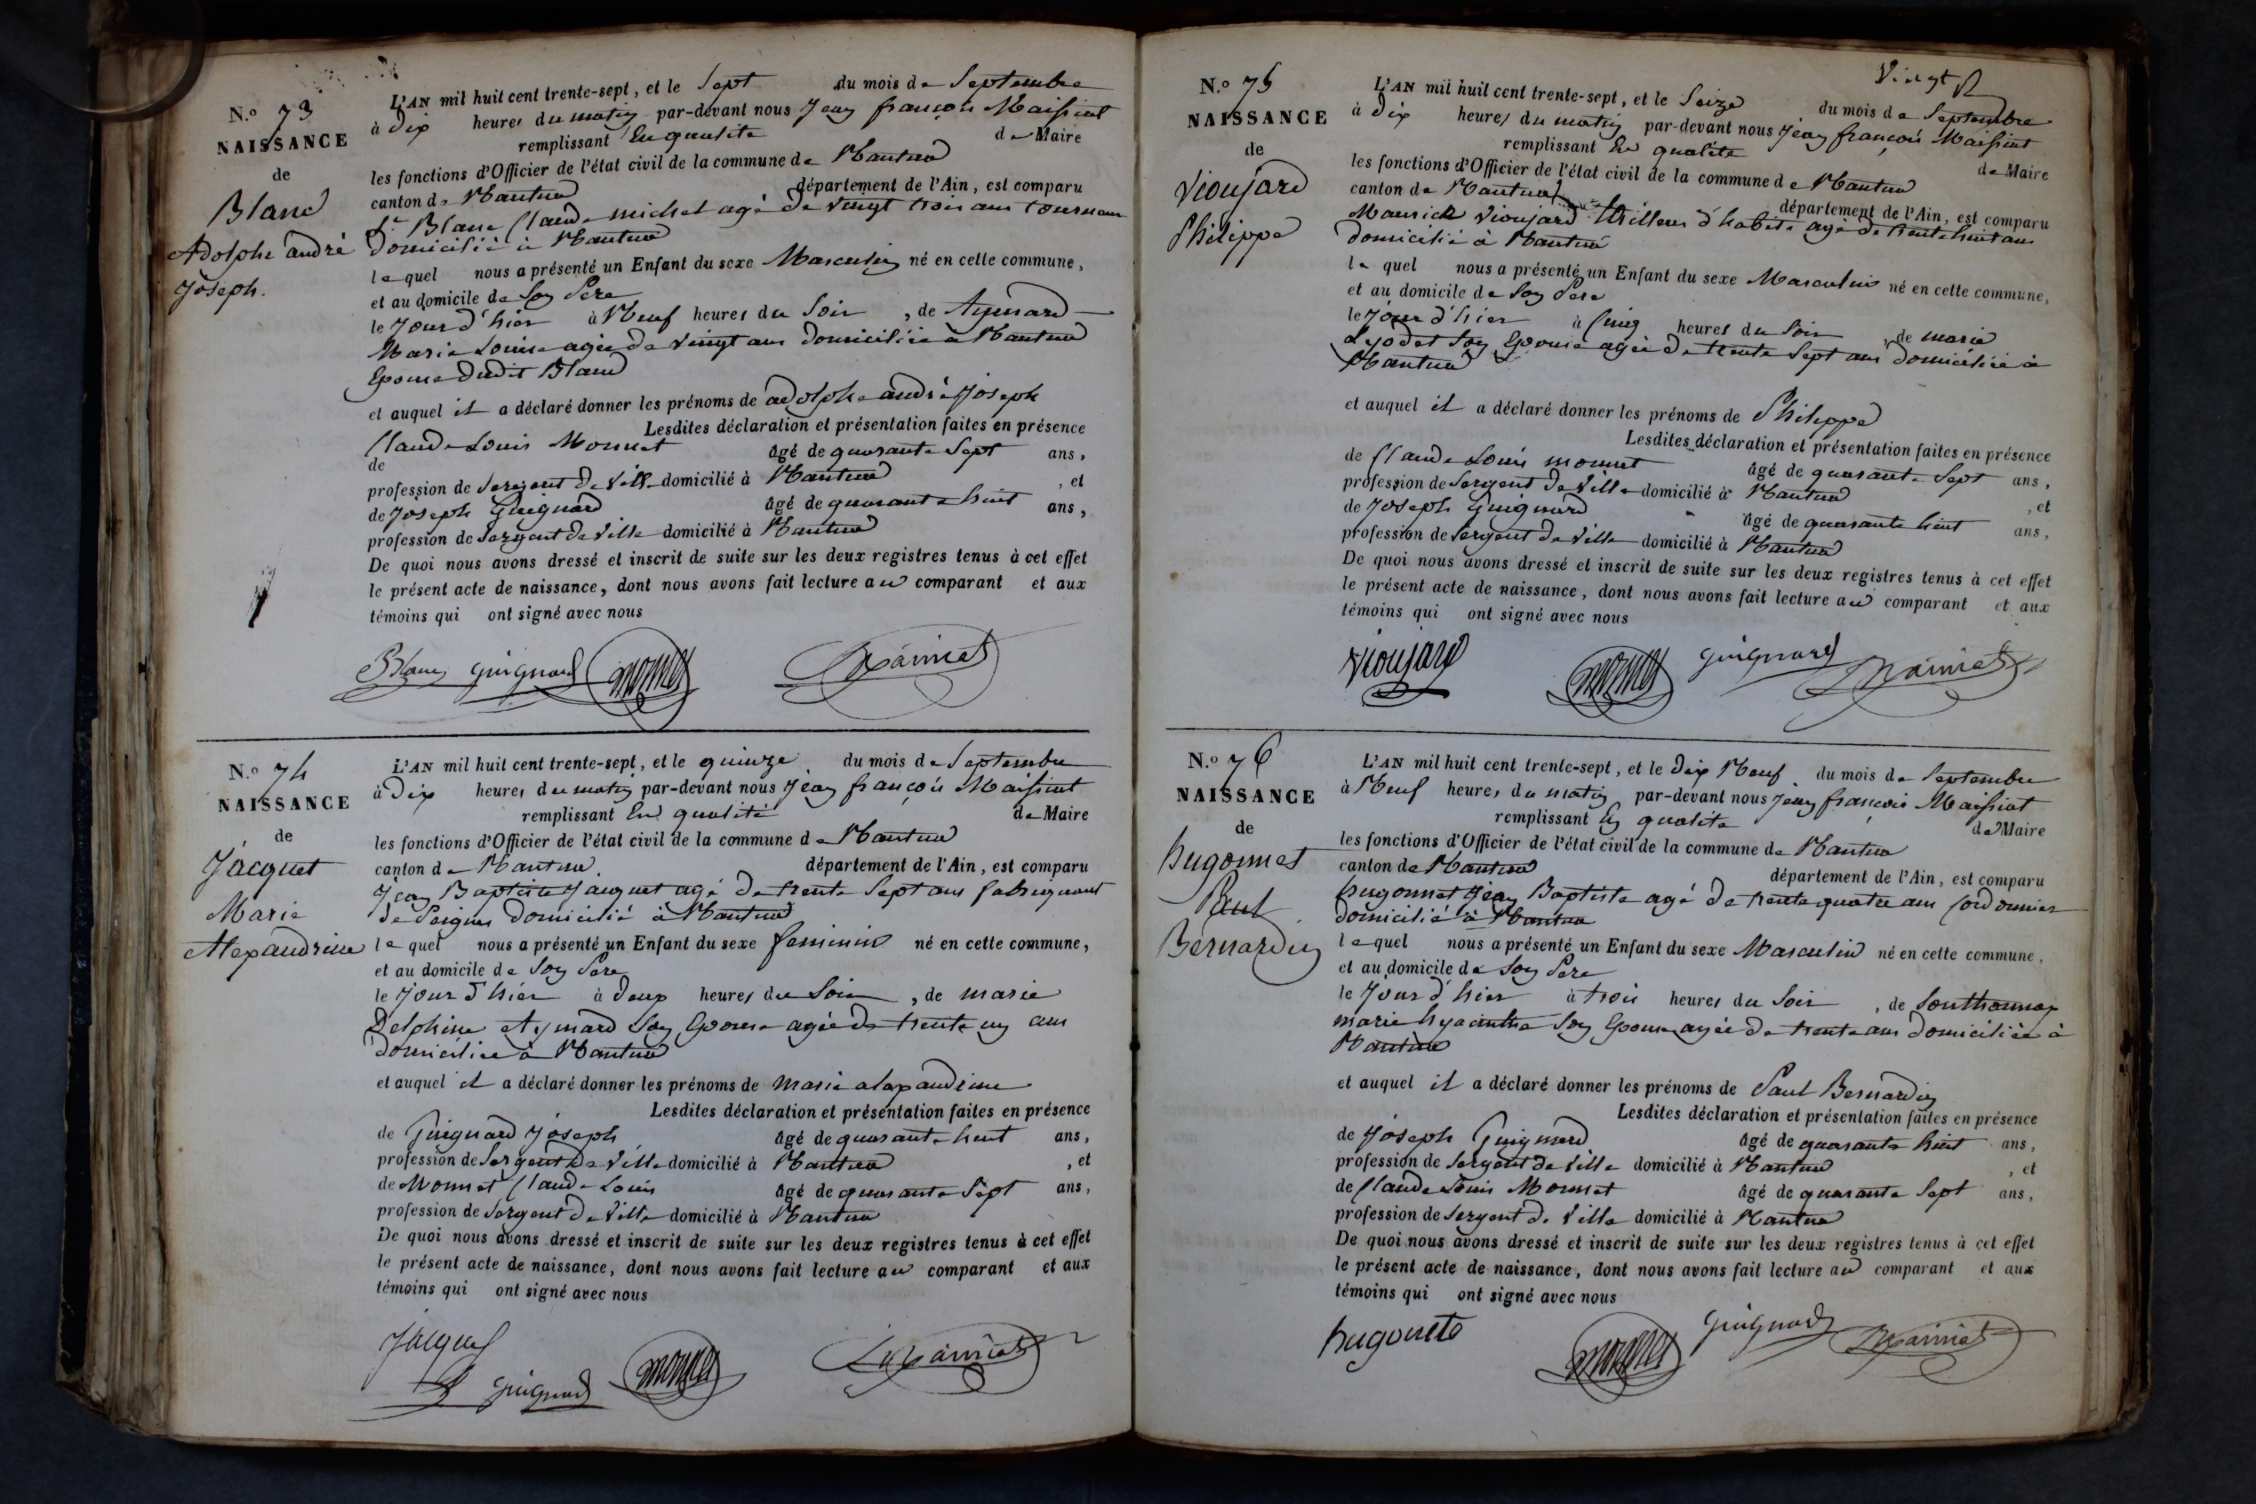 N.º 73
NAISSANCE
de
Blanc
Adolphe andré
Joseph.
L'AN mil huit cent trente-sept, et le Sept du mois de Septembre
à dix heures du matin par-devant nous Jean françois Maissiat
remplissant En qualité de Maire
les fonctions d'Officier de l'état civil de la commune de Nantua
canton de Nantua département de l'Ain, est comparu
Sr Blanc Claude michel agé de vingt trois ans tourneur
domicilié à Nantua
lequel nous a présenté un Enfant du sexe Masculin né en cette commune,
et au domicile de Son Pere
le Jour d'hier à Neuf heures du Soir, de Aymard
Marie Louise agée de vingt ans domiciliée à Nantua
Epouse dudit Blanc
et auquel il a déclaré donner les prénoms de adolphe andré Joseph
Lesdites déclaration et présentation faites en présence
de Claude Louis Monnet âgé de quarante Sept ans,
profession de Sergent de Ville domicilié à Nantua, et
de Joseph Guignard âgé de quarante huit ans,
profession de Sergent de Ville domicilié à Nantua
De quoi nous avons dressé et inscrit de suite sur les deux registres tenus à cet effet
le présent acte de naissance, dont nous avons fait lecture au comparant et aux
témoins qui ont signé avec nous
Blanc Guignard monnet
N.º 74
NAISSANCE
de
Jacquet
Marie
Alexandrine
L'AN mil huit cent trente-sept, et le quinze du mois de Septembre
à Dix heures du matin par-devant nous Jean françois Maissiat
remplissant En qualité de Maire
les fonctions d'Officier de l'état civil de la commune de Nantua
canton de Nantua département de l'Ain, est comparu
Jean Baptiste Jacquet agé de trente Sept ans fabriquant
de Peignes domicilié à Nantua
lequel nous a présenté un Enfant du sexe feminin né en cette commune,
et au domicile de Son Pere
le Jour d'hier à deux heures du Soir, de marie
Delphine Aymard Son Epouse agée de trente un ans
domiciliée à Nantua
et auquel il a déclaré donner les prénoms de marie alexandrine
Lesdites déclaration et présentation faites en présence
de Guignard Joseph âgé de quarante huit ans,
profession de Sergent de Ville domicilié à Nantua, et
de Monnet Claude Louis âgé de quarante Sept ans,
profession de Sergent de Ville domicilié à Nantua
De quoi nous avons dressé et inscrit de suite sur les deux registres tenus à cet effet
le présent acte de naissance, dont nous avons fait lecture au comparant et aux
témoins qui ont signé avec nous
Jacquet
Guignard monnet
Vingt
N.º 75
NAISSANCE
de
Vioujard
Philippe
L'AN mil huit cent trente-sept, et le Seize du mois de Septembre
à Dix heures du matin par-devant nous Jean françois Maissiat
remplissant En qualité de Maire
les fonctions d'Officier de l'état civil de la commune de Nantua
canton de Nantua département de l'Ain, est comparu
Maurice Vioujard tailleur d'habits agé de trente huit ans
domicilié à Nantua
lequel nous a présenté un Enfant du sexe Masculin né en cette commune,
et au domicile de Son Pere
le Jour d'hier à Cinq heures du Soir, de marie
Lyodet Son Epouse agée de trente Sept ans domiciliée à
Nantua
et auquel il a déclaré donner les prénoms de Philippe
Lesdites déclaration et présentation faites en présence
de Claude Louis monnet âgé de quarante Sept ans,
profession de Sergent de Ville domicilié à Nantua, et
de Joseph Guignard âgé de quarante huit ans,
profession de Sergent de Ville domicilié à Nantua
De quoi nous avons dressé et inscrit de suite sur les deux registres tenus à cet effet
le présent acte de naissance, dont nous avons fait lecture au comparant et aux
témoins qui ont signé avec nous
Vioujard monnet Guignard
N.º 76
NAISSANCE
de
hugonnet
Paul
Bernardin
L'AN mil huit cent trente-sept, et le dix Neuf du mois de Septembre
à Neuf heures du matin par-devant nous Jean françois Maissiat
remplissant En qualité de Maire
les fonctions d'Officier de l'état civil de la commune de Nantua
canton de Nantua département de l'Ain, est comparu
hugonnet Jean Baptiste agé de trente quatre ans Cordonnier
domicilié à Nantua
lequel nous a présenté un Enfant du sexe Masculin né en cette commune,
et au domicile de Son Pere
le Jour d'hier à trois heures du Soir, de Southonnax
marie hyacinthe Son Epouse agée de trente ans domiciliée à
Nantua
et auquel il a déclaré donner les prénoms de Paul Bernardin
Lesdites déclaration et présentation faites en présence
de Joseph Guignard âgé de quarante huit ans,
profession de Sergent de Ville domicilié à Nantua, et
de Claude Louis Monnet âgé de quarante Sept ans,
profession de Sergent de Ville domicilié à Nantua
De quoi nous avons dressé et inscrit de suite sur les deux registres tenus à cet effet
le présent acte de naissance, dont nous avons fait lecture au comparant et aux
témoins qui ont signé avec nous
hugonete monnet Guignard